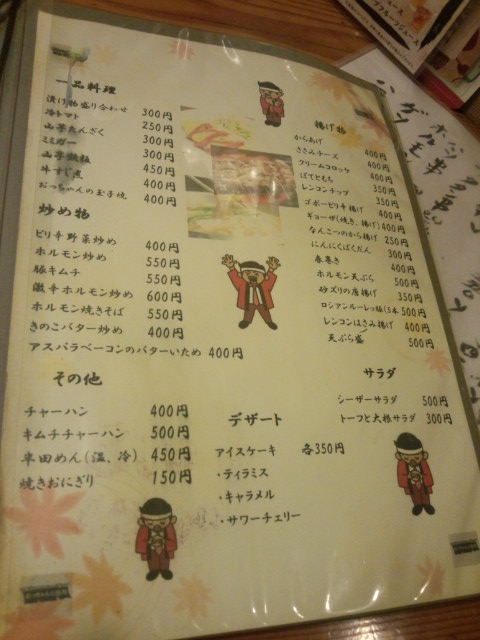 一品料理
漬け物盛り合わせ 300円
冷トマト 250円
山芋たんざく 300円
ミミガー 300円
山芋鉄板 450円
牛すじ煮 400円
おっちゃんの玉子焼 400円
炒め物
ピリ辛野菜炒め 400円
ホルモン炒め 550円
豚キムチ 550円
激辛ホルモン炒め 600円
ホルモン焼きそば 550円
きのこバター炒め 400円
アスパラベーコンのバターいため 400円
その他
チャーハン 400円
キムチチャーハン 500円
半田めん(温、冷) 450円
焼きおにぎり 150円
揚げ物
からあげ 400円
ささみチーズ 400円
クリームコロッケ 400円
ぽてともち 350円
レンコンチップ 350円
ゴボーピリ辛揚げ 400円
ギョーザ(焼き、揚げ) 400円
なんこつのから揚げ 250円
にんにくばくだん 300円
春巻き 400円
ホルモン天ぷら 500円
砂ズリの唐揚げ 350円
ロシアンルーレッ豚(5本 500円
レンコンはさみ揚げ 400円
天ぷら盛 500円
サラダ
シーザーサラダ 500円
トーフと大根サラダ 300円
デザート
アイスケーキ 各350円
・ティラミス
・キャラメル
・サワーチェリー